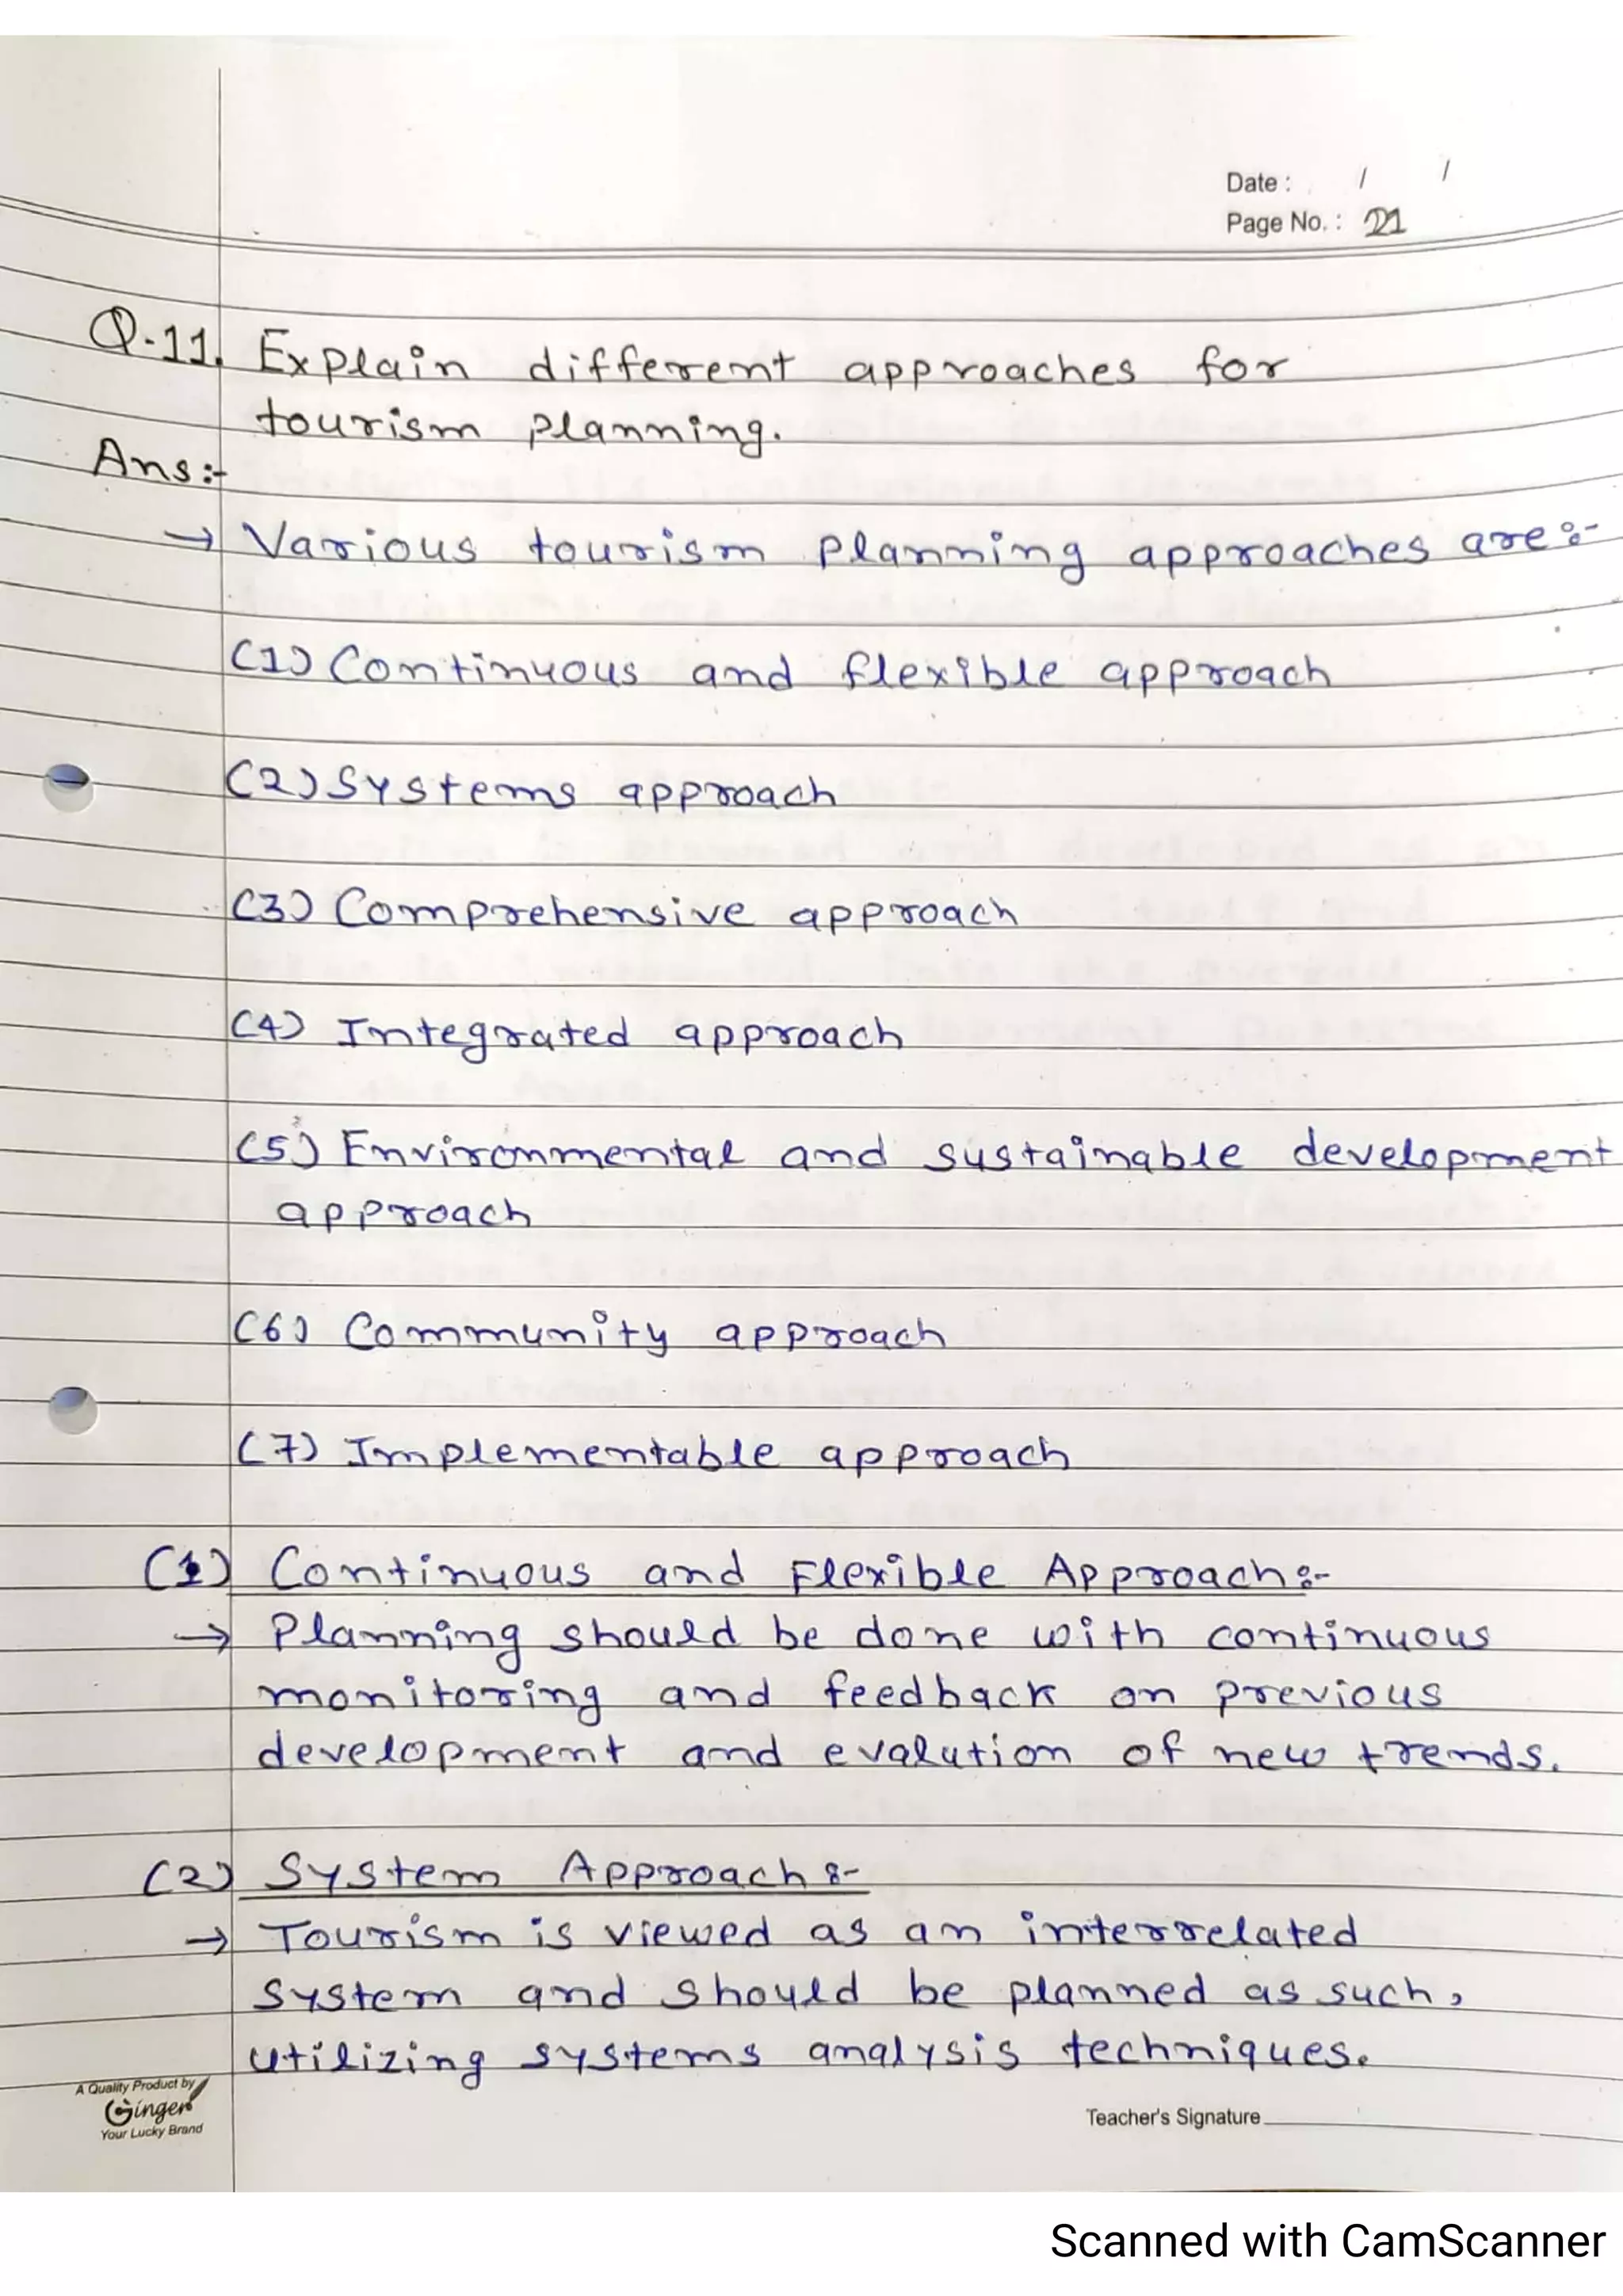 Date : / /
Page No. : 21
Q.11. Explain different approaches for
tourism planning.
Ans:-
→ Various tourism planning approaches are:-
(1) Continuous and flexible approach
(2) Systems approach
(3) Comprehensive approach
(4) Integrated approach
(5) Environmental and sustainable development
approach
(6) Community approach
(7) Implementable approach
(1) Continuous and Flexible Approach:-
→ Planning should be done with continuous
monitoring and feedback on previous
development and evalution of new trends.
(2) System Approach:-
→ Tourism is viewed as an interrelated
system and should be planned as such,
utilizing systems analysis techniques.
A Quality Product by
Ginger
Your Lucky Brand
Teacher's Signature
Scanned with CamScanner